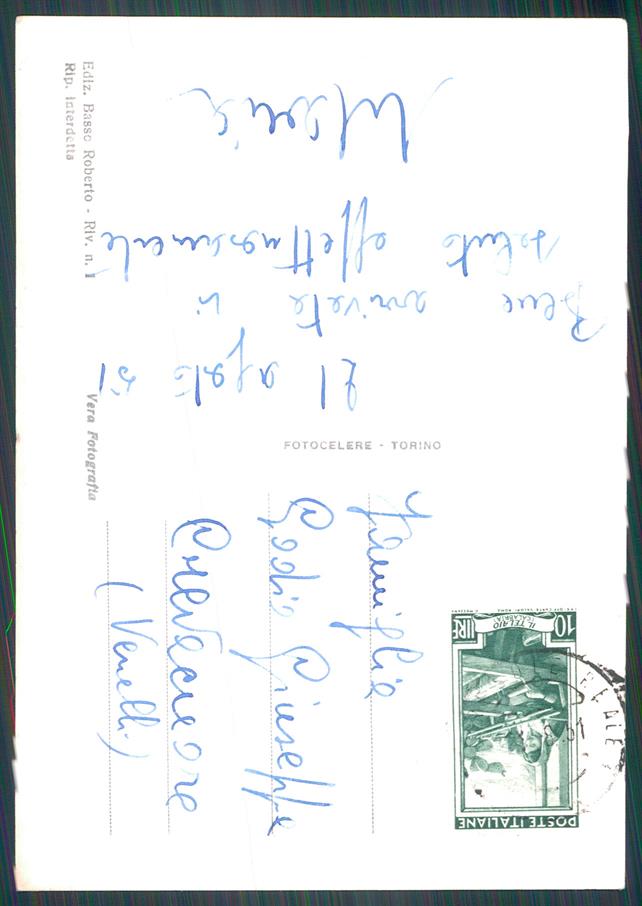 Ediz. Basso Roberto - Riv. n. 1
Rip. interdetta
Vera Fotografia
FOTOCELERE - TORINO
21 agosto 51
Bene arrivate vi
saluto affettuosamente
Famiglia
Godio Giuseppe
Crevacuore
(Vercelli)
POSTE ITALIANE
10 LIRE
IL TELAIO
(CALABRIA)